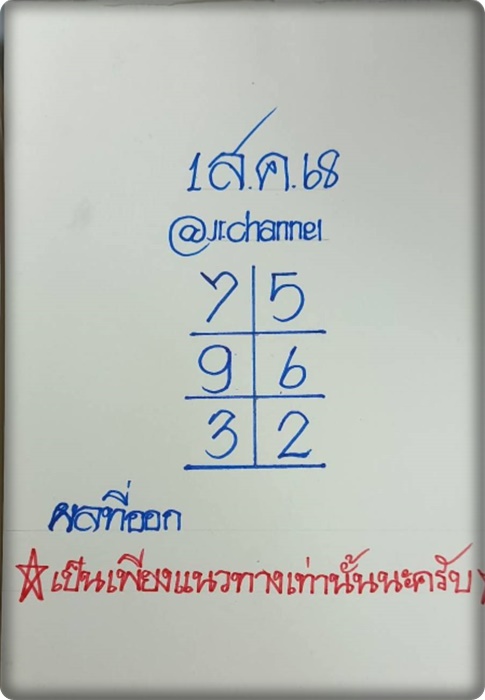 1 ส.ค. 68
@jr.channel
7 5
9 6
3 2
ผลที่ออก
☆เป็นเพียงแนวทางเท่านั้นนะครับ